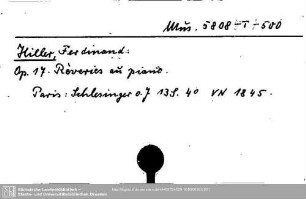 Mus. 5808-T-500
Hiller, Ferdinand:
Op. 17. Rêveries au piano.
Paris: Schlesinger o.J 13 S. 4° VN 1845.